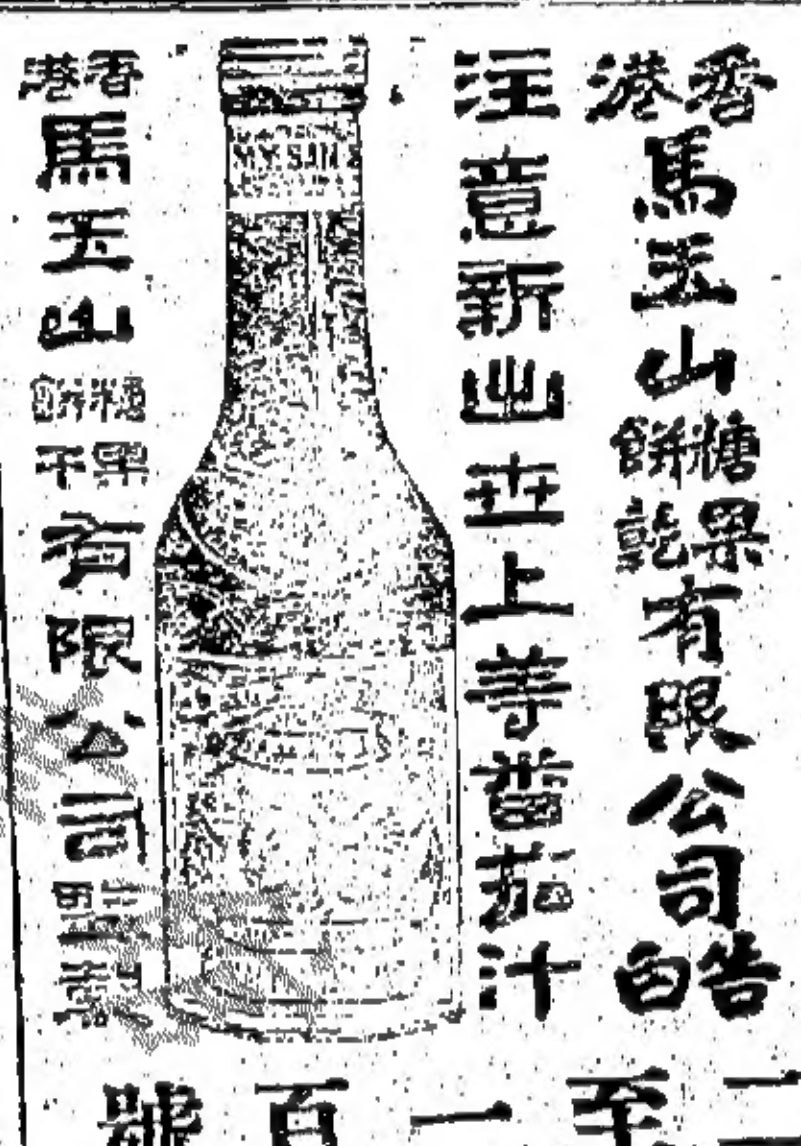 香港馬玉山糖果餅乾有限公司告白
注意新出世上等蕃茄汁
香港馬玉山糖果餅干有限公司
二至一百號